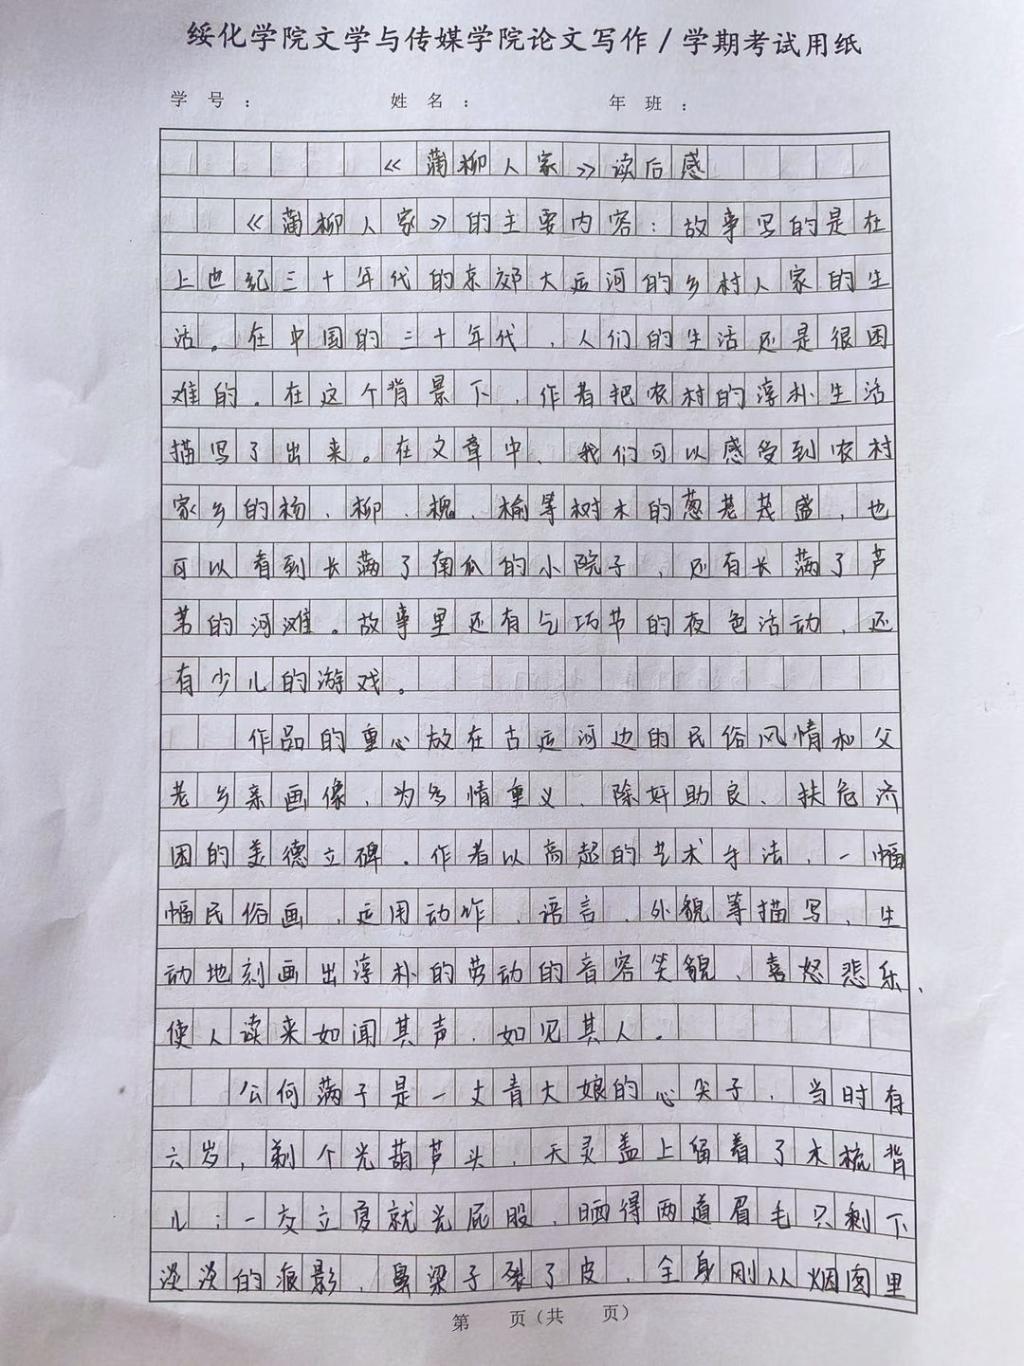 绥化学院文学与传媒学院论文写作/学期考试用纸
学号： 姓名： 年班：
《蒲柳人家》读后感
《蒲柳人家》的主要内容：故事写的是在
上世纪三十年代的京郊大运河的乡村人家的生
活。在中国的三十年代，人们的生活还是很困
难的。在这个背景下，作者把农村的淳朴生活
描写了出来。在文章中，我们可以感受到农村
家乡的杨、柳、槐、榆等树木的葱茏茂盛，也
可以看到长满了南瓜的小院子，还有长满了芦
苇的河滩。故事里还有乞巧节的夜色活动，还
有少儿的游戏。
作品的重心放在古运河边的民俗风情和父
老乡亲画像，为多情重义、除奸助良、扶危济
困的美德立碑。作者以高超的艺术手法，一幅
幅民俗画，运用动作、语言、外貌等描写，生
动地刻画出淳朴的劳动的音容笑貌、喜怒悲乐，
使人读来如闻其声，如见其人。
公何满子是一丈青大娘的心尖子，当时有
六岁，剃个光葫芦头，天灵盖上留着了木梳背
儿；一交立夏就光屁股，晒得两道眉毛只剩下
淡淡的痕影，鼻梁子裂了皮，全身刚从烟囱里
第 页（共 页）